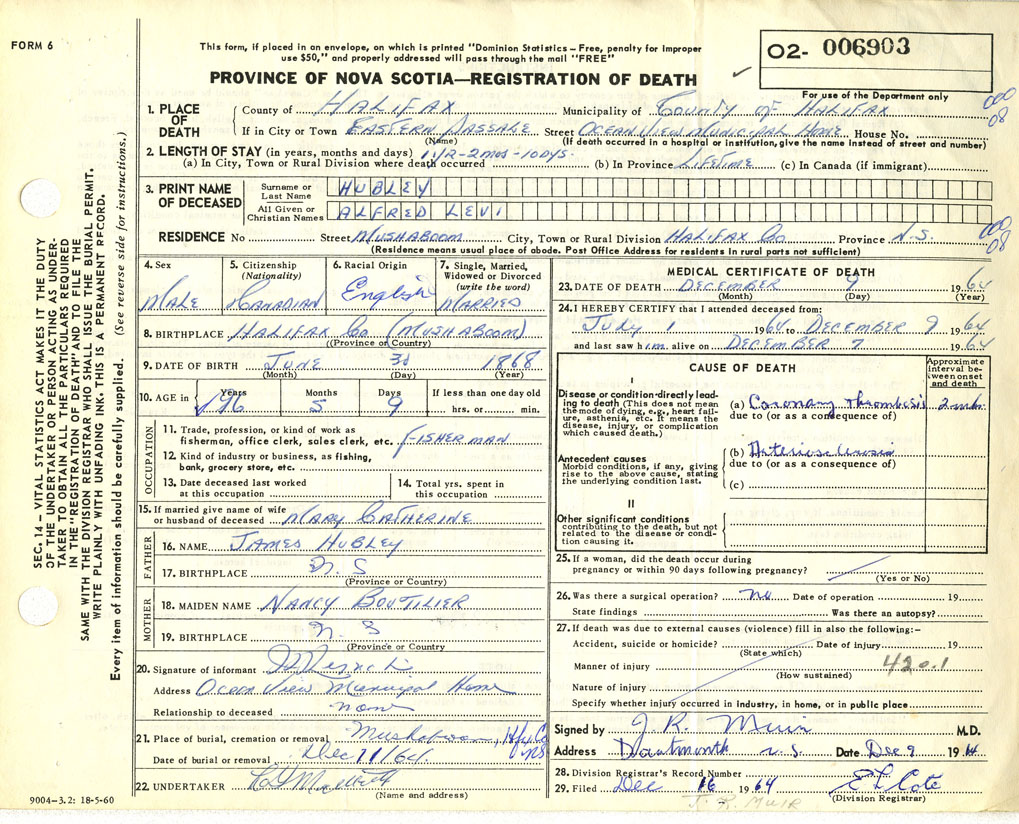 FORM 6
This form, if placed in an envelope, on which is printed "Dominion Statistics – Free, penalty for improper
use $50," and properly addressed will pass through the mail "FREE"
PROVINCE OF NOVA SCOTIA—REGISTRATION OF DEATH
O2- 006903
For use of the Department only
1. PLACE OF DEATH
County of HALIFAX Municipality of COUNTY OF HALIFAX
000
08
If in City or Town EASTERN PASSAGE Street OCEAN VIEW MUNICIPAL HOME House No.
(Name) (If death occurred in a hospital or institution, give the name instead of street and number)
2. LENGTH OF STAY (in years, months and days) 1 YR-2 MOS-10 DYS.
(a) In City, Town or Rural Division where death occurred (b) In Province LIFETIME (c) In Canada (if immigrant)
3. PRINT NAME OF DECEASED
Surname or Last Name HUBLEY
All Given or Christian Names ALFRED LEVI
RESIDENCE No Street MUSHABOOM City, Town or Rural Division HALIFAX CO Province N.S.
000
08
(Residence means usual place of abode. Post Office Address for residents in rural parts not sufficient)
4. Sex MALE
5. Citizenship (Nationality) CANADIAN
6. Racial Origin English
7. Single, Married, Widowed or Divorced (write the word) MARRIED
8. BIRTHPLACE HALIFAX CO (MUSHABOOM)
(Province or Country)
9. DATE OF BIRTH JUNE 3d 1868
(Month) (Day) (Year)
10. AGE in Years 96 Months 5 Days 9 If less than one day old hrs. or min.
OCCUPATION
11. Trade, profession, or kind of work as
fisherman, office clerk, sales clerk, etc. FISHERMAN
12. Kind of industry or business, as fishing,
bank, grocery store, etc.
13. Date deceased last worked at this occupation
14. Total yrs. spent in this occupation
15. If married give name of wife
or husband of deceased MARY CATHERINE
FATHER
16. NAME JAMES HUBLEY
17. BIRTHPLACE N. S
(Province or Country)
MOTHER
18. MAIDEN NAME NANCY BOUTILIER
19. BIRTHPLACE N. S
(Province or Country)
20. Signature of informant
Address Ocean View Municipal Home
Relationship to deceased none
21. Place of burial, cremation or removal Mushaboom, Hfx Co NS
Date of burial or removal Dec 11/64.
22. UNDERTAKER
(Name and address)
9004-3.2: 18-5-60
MEDICAL CERTIFICATE OF DEATH
23. DATE OF DEATH DECEMBER 9 1964
(Month) (Day) (Year)
24. I HEREBY CERTIFY that I attended deceased from:
JULY 1 1964 to DECEMBER 9 1964
and last saw him alive on DECEMBER 7 1964
CAUSE OF DEATH
Approximate interval between onset and death
I
Disease or condition directly leading to death (This does not mean the mode of dying, e.g., heart failure, asthenia, etc. It means the disease, injury, or complication which caused death.)
(a) Coronary Thrombosis
due to (or as a consequence of)
Antecedent causes
Morbid conditions, if any, giving rise to the above cause, stating the underlying condition last.
(b) Arteriosclerosis
due to (or as a consequence of)
(c)
II
Other significant conditions
contributing to the death, but not related to the disease or condition causing it.
25. If a woman, did the death occur during
pregnancy or within 90 days following pregnancy?
(Yes or No)
26. Was there a surgical operation? no Date of operation 19
State findings Was there an autopsy?
27. If death was due to external causes (violence) fill in also the following:–
Accident, suicide or homicide? Date of injury 19
(State which)
Manner of injury 420.1
(How sustained)
Nature of injury
Specify whether injury occurred in industry, in home, or in public place
Signed by J. R. Muir M.D.
Address Dartmouth N.S. Date Dec 9 1964
28. Division Registrar's Record Number
29. Filed Dec 16 1964 E L Cote
(Division Registrar)
J. R. MUIR
SEC. 14 – VITAL STATISTICS ACT MAKES IT THE DUTY
OF THE UNDERTAKER OR PERSON ACTING AS UNDER-
TAKER TO OBTAIN ALL THE PARTICULARS REQUIRED
IN THE "REGISTRATION OF DEATH" AND TO FILE THE
SAME WITH THE DIVISION REGISTRAR WHO SHALL ISSUE THE BURIAL PERMIT.
WRITE PLAINLY WITH UNFADING INK. THIS IS A PERMANENT RECORD.
Every item of information should be carefully supplied. (See reverse side for instructions.)